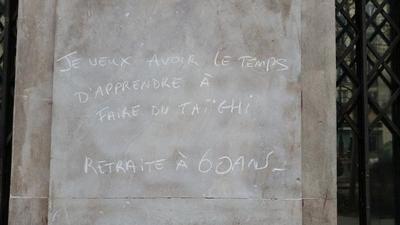 JE VEUX AVOIR LE TEMPS
D'APPRENDRE À
FAIRE DU TAÏCHI
RETRAITE À 60 ANS_